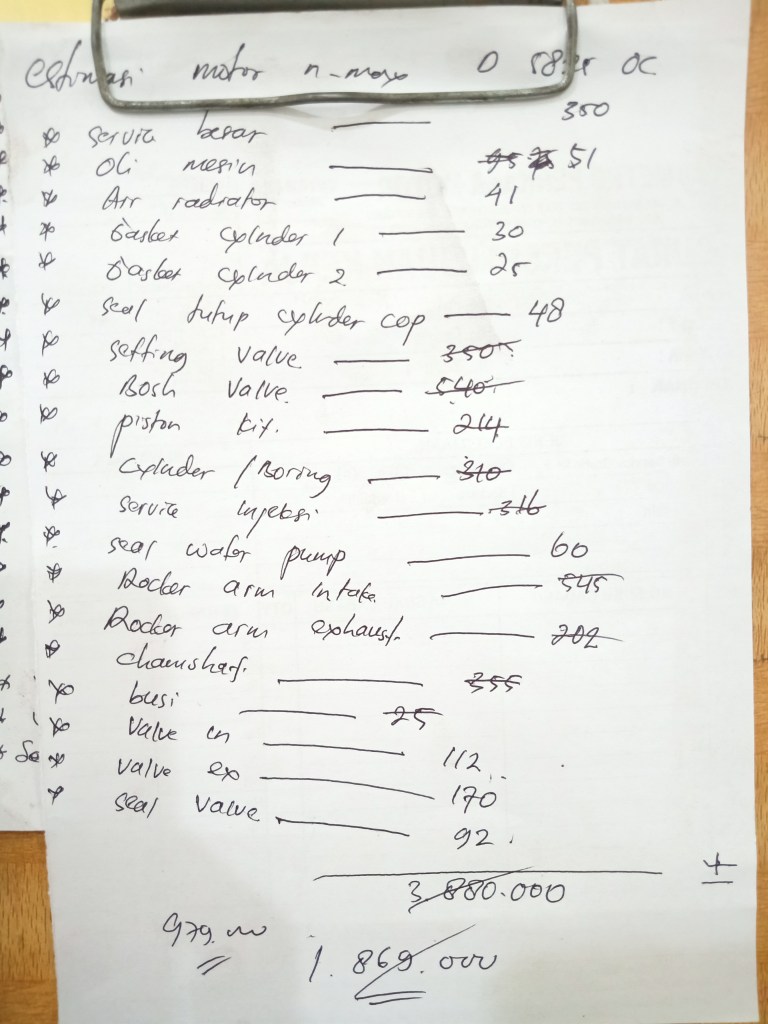 estimasi motor n-max D 58 OC
* servis besar — 350
* Oli mesin — 51
* Air radiator — 41
* Gasket cylnder 1 — 30
* Gasket cylnder 2 — 25
* seal tutup cylnder cop — 48
* setting valve — 350
* Bosh valve — 540
* piston kit. — 214
* Cylnder / Boring — 310
* servis injeksi — 316
* seal water pump — 60
* Rocker arm intake — 545
* Rocker arm exhaust. — 202
* chamshaf. — 355
* busi — 25
* Valve in — 112
* valve ex — 170
* seal valve — 92
+
3.880.000
979.000
1.869.000